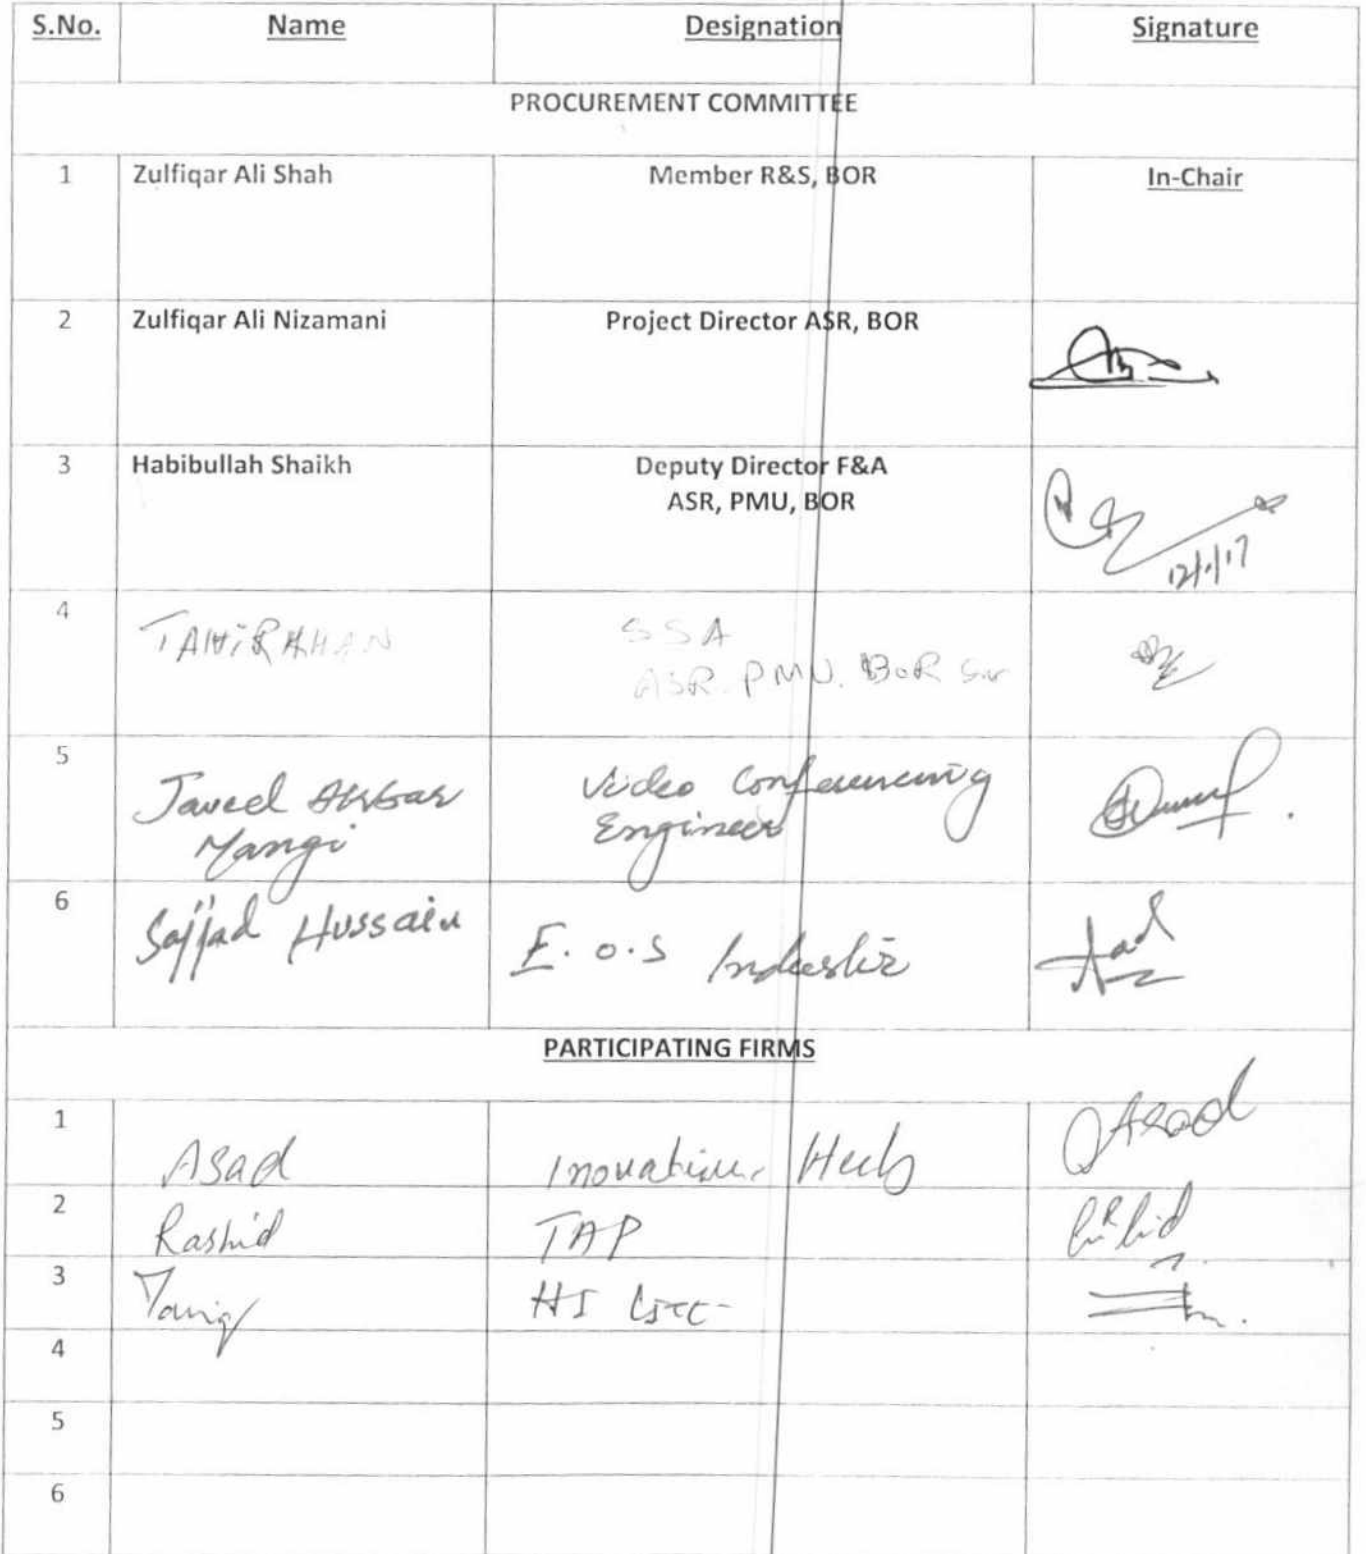 S.No. Name Designation Signature
PROCUREMENT COMMITTEE
1 Zulfiqar Ali Shah Member R&S, BOR In-Chair
2 Zulfiqar Ali Nizamani Project Director ASR, BOR
3 Habibullah Shaikh Deputy Director F&A
ASR, PMU, BOR
12/1/17
4 TAHIR KHAN SSA
ASR PMU. BOR
5 Javeed Akbar Video Conferencing
Mangi Engineer
6 Sajjad Hussain E.o.S
PARTICIPATING FIRMS
1 Asad Inovative Hub Asad
2 Rashid TAP
3 Tariq HI
4
5
6